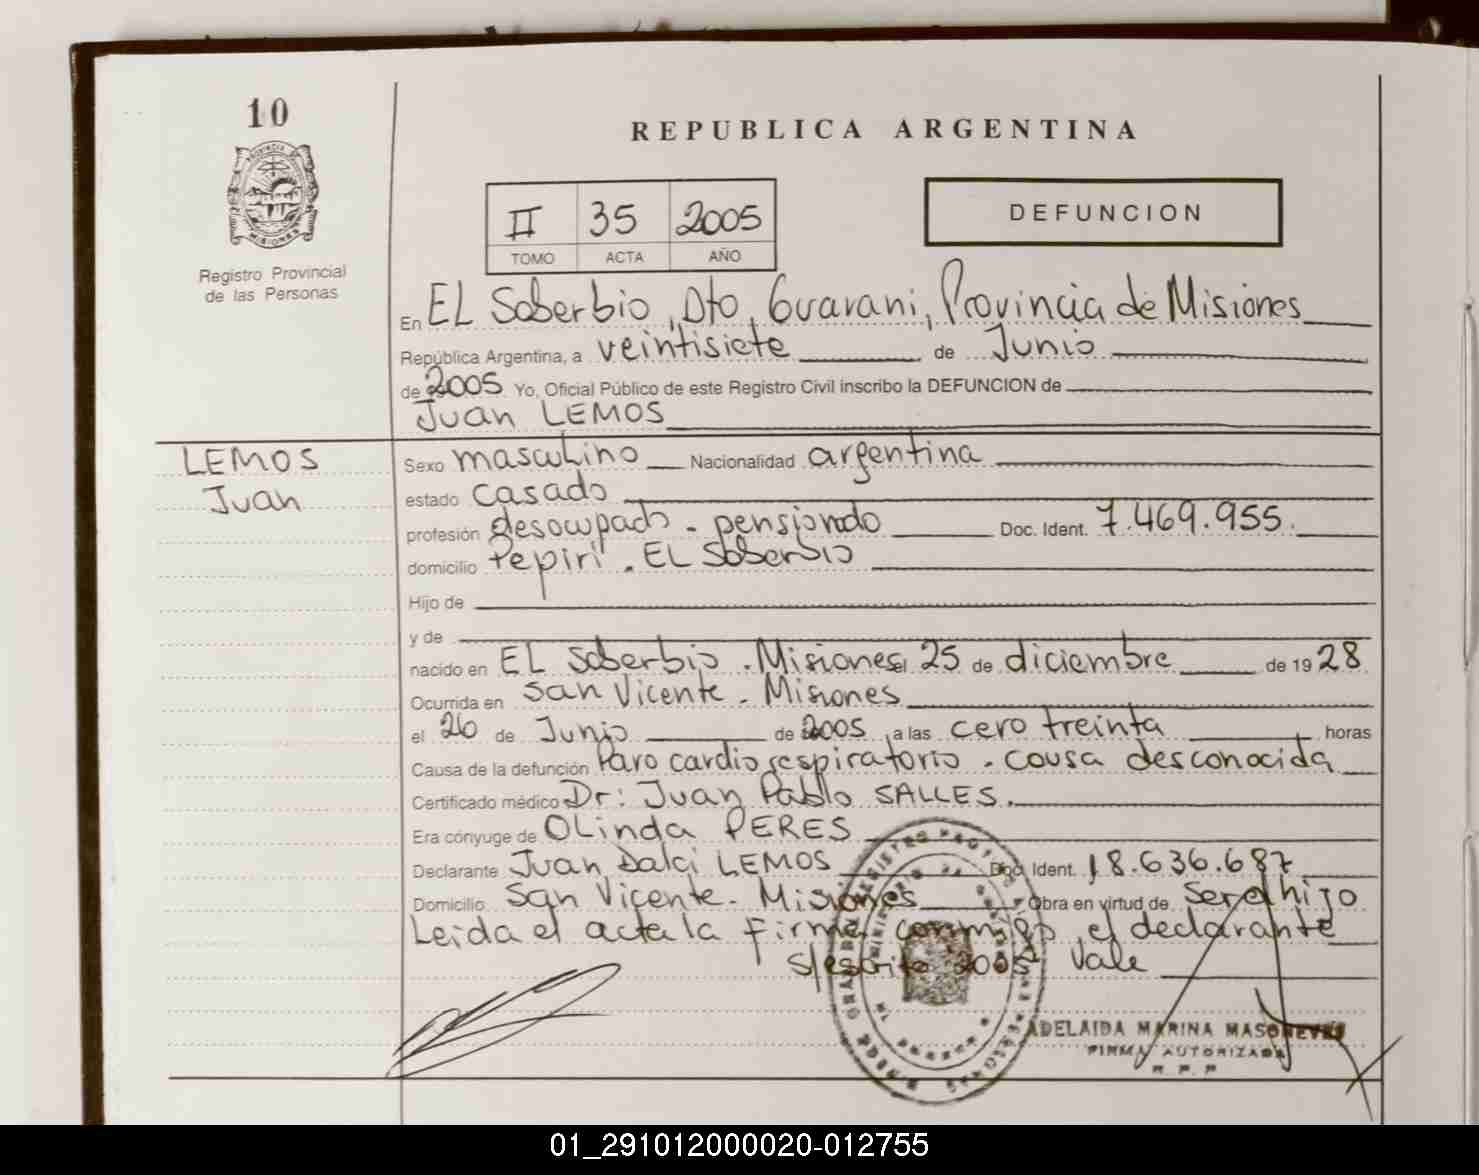 10
REPUBLICA ARGENTINA
II 35 2005
TOMO ACTA AÑO
DEFUNCION
PROVINCIA DE MISIONES
Registro Provincial
de las Personas
En EL Soberbio, Dto, Guarani, Provincia de Misiones
República Argentina, a veintisiete de Junio
de 2005 Yo, Oficial Público de este Registro Civil inscribo la DEFUNCION de
Juan LEMOS
LEMOS
Juan
Sexo masculino Nacionalidad argentina
estado casado
profesión desocupado - pensionado Doc. Ident. 7.469.955.
domicilio Pepiri - EL Soberbio
Hijo de
y de
nacido en EL Soberbio - Misiones el 25 de diciembre de 1928
Ocurrida en San Vicente - Misiones
el 26 de Junio de 2005, a las cero treinta horas
Causa de la defunción Paro cardio respiratorio - causa desconocida
Certificado médico Dr: Juan Pablo SALLES.
Era cónyuge de OLinda PERES
Declarante Juan Dalci LEMOS Doc. Ident. 18.636.687
Domicilio San Vicente - Misiones Obra en virtud de Ser el hijo
Leida el acta la firma conmigo el declarante
s/escrito "2005" Vale
ADELAIDA MARINA
FIRMA AUTORIZADA
01_291012000020-012755